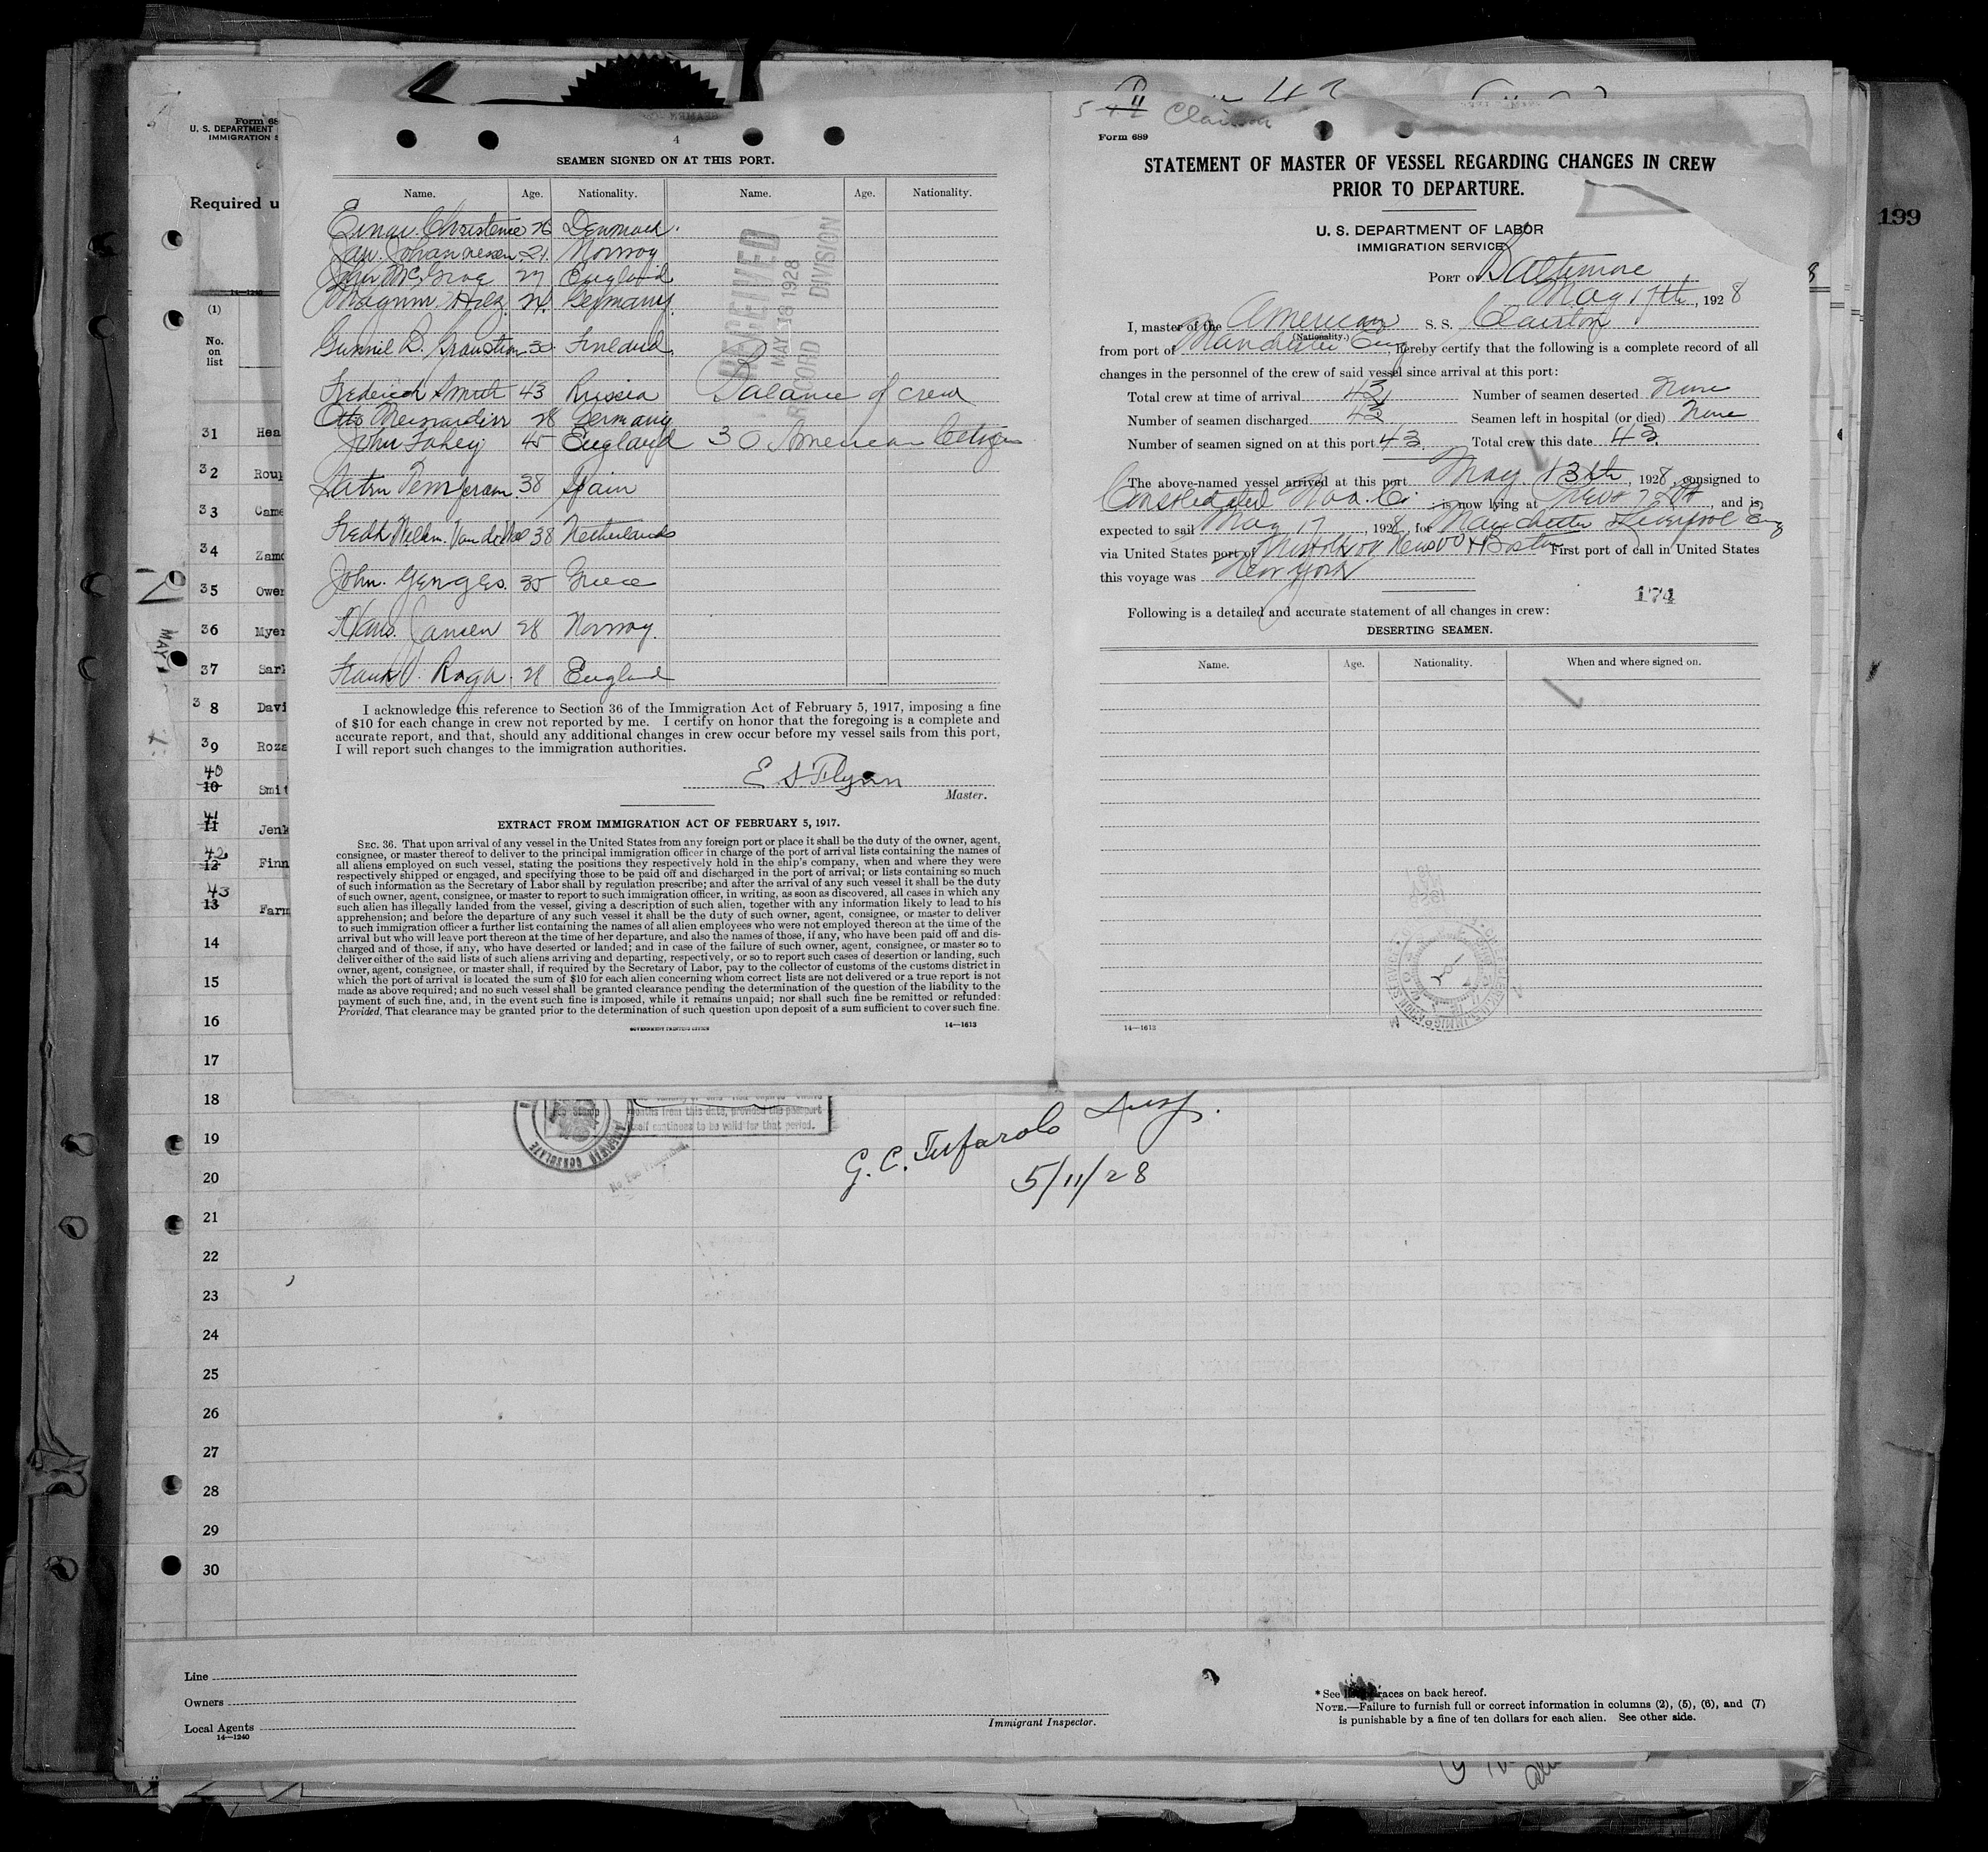 Form 68
U. S. DEPARTMENT
IMMIGRATION S
Required u
14—1240
(1)
No.
on
list
31 Hea
32 Roup
33 Came
34 Zamo
35 Ower
36 Myer
37 Sarl
38 Davi
39 Roza
40
10 Smit
41
11 Jenk
42
12 Finn
43
13 Farm
14
15
16
17
18
19
20
21
22
23
24
25
26
27
28
29
30
MAY
4
SEAMEN SIGNED ON AT THIS PORT.
Name. Age. Nationality. Name. Age. Nationality.
Einar Christensen 26 Denmark.
Johannessen 21. Norway
John McGrog 27 England
Germany.
30. Finland.
Frederick Smith 43 Russia Balance of crew
Otto 28 Germany
John Fahey 45 England 30 American Citizens
38 Spain
Fredk Willem. Van der 38 Netherlands
John. Genges. 35 Greece
Hans. Jansen 28 Norway.
Frank Roga. 28 England
RECEIVED
MAY 18 1928
RECORD DIVISION
I acknowledge this reference to Section 36 of the Immigration Act of February 5, 1917, imposing a fine
of $10 for each change in crew not reported by me. I certify on honor that the foregoing is a complete and
accurate report, and that, should any additional changes in crew occur before my vessel sails from this port,
I will report such changes to the immigration authorities.
E S. Flynn
Master.
EXTRACT FROM IMMIGRATION ACT OF FEBRUARY 5, 1917.
SEC. 36. That upon arrival of any vessel in the United States from any foreign port or place it shall be the duty of the owner, agent,
consignee, or master thereof to deliver to the principal immigration officer in charge of the port of arrival lists containing the names of
all aliens employed on such vessel, stating the positions they respectively hold in the ship's company, when and where they were
respectively shipped or engaged, and specifying those to be paid off and discharged in the port of arrival; or lists containing so much
of such information as the Secretary of Labor shall by regulation prescribe; and after the arrival of any such vessel it shall be the duty
of such owner, agent, consignee, or master to report to such immigration officer, in writing, as soon as discovered, all cases in which any
such alien has illegally landed from the vessel, giving a description of such alien, together with any information likely to lead to his
apprehension; and before the departure of any such vessel it shall be the duty of such owner, agent, consignee, or master to deliver
to such immigration officer a further list containing the names of all alien employees who were not employed thereon at the time of the
arrival but who will leave port thereon at the time of her departure, and also the names of those, if any, who have been paid off and dis-
charged and of those, if any, who have deserted or landed; and in case of the failure of such owner, agent, consignee, or master so to
deliver either of the said lists of such aliens arriving and departing, respectively, or so to report such cases of desertion or landing, such
owner, agent, consignee, or master shall, if required by the Secretary of Labor, pay to the collector of customs of the customs district in
which the port of arrival is located the sum of $10 for each alien concerning whom correct lists are not delivered or a true report is not
made as above required; and no such vessel shall be granted clearance pending the determination of the question of the liability to the
payment of such fine, and, in the event such fine is imposed, while it remains unpaid; nor shall such fine be remitted or refunded:
Provided, That clearance may be granted prior to the determination of such question upon deposit of a sum sufficient to cover such fine.
GOVERNMENT PRINTING OFFICE 14—1613
Clairton
Form 689
STATEMENT OF MASTER OF VESSEL REGARDING CHANGES IN CREW
PRIOR TO DEPARTURE.
U. S. DEPARTMENT OF LABOR
IMMIGRATION SERVICE
PORT OF Baltimore
May 17th, 1928
I, master of the American S. S. Clairton
(Nationality.)
from port of Manchester Eng, hereby certify that the following is a complete record of all
changes in the personnel of the crew of said vessel since arrival at this port:
Total crew at time of arrival 43 Number of seamen deserted None
Number of seamen discharged 43 Seamen left in hospital (or died) None
Number of seamen signed on at this port 43 Total crew this date 43.
The above-named vessel arrived at this port May. 13th, 1928, consigned to
Consolidated Nav. Co. is now lying at , and is
expected to sail May 17, 1928, for Manchester & Liverpool Eng
via United States port of Norfolk & Boston First port of call in United States
this voyage was New York
174
Following is a detailed and accurate statement of all changes in crew:
DESERTING SEAMEN.
Name. Age. Nationality. When and where signed on.
14—1613
199
months from this date, provided the passport
itself continues to be valid for that period.
No Fee Prescribed.
AMERICAN CONSULATE
G. C. Tufarolo Insp.
5/11/28
Line
Owners
Local Agents
14—1240
Immigrant Inspector.
* See races on back hereof.
NOTE.—Failure to furnish full or correct information in columns (2), (5), (6), and (7)
is punishable by a fine of ten dollars for each alien. See other side.